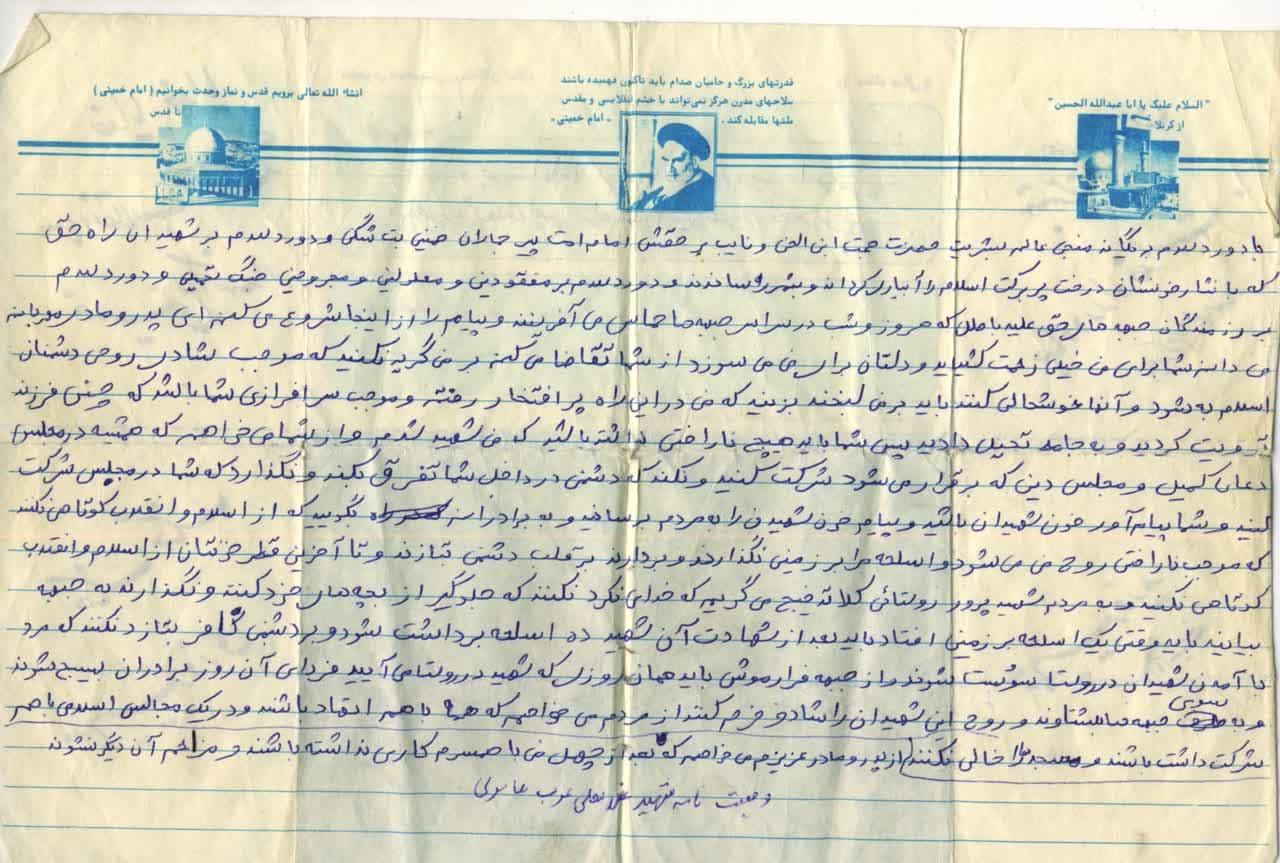 "السلام علیک یا ابا عبدالله الحسین"
از کربلا
قدرتهای بزرگ و حامیان صدام باید تاکنون فهمیده باشند
سلاحهای مدرن هرگز نمی‌تواند با خشم انقلابی و مقدس
ملتها مقابله کند. «امام خمینی»
انشاء الله تعالی برویم قدس و نماز وحدت بخوانیم (امام خمینی)
تا قدس
با درود و سلام بر یگانه منجی عالم بشریت حضرت حجت ابن الحسن و نایب بر حقش امام امت پیر جماران خمینی بت شکن و درود و سلام بر شهیدان راه حق
که با نثار خونشان درخت پر برکت اسلام را آبیاری کردند و بثمر رساندند و درود و سلام بر مفقودین و معلولین و مجروحین جنگ تحمیلی و درود و سلام
بر رزمندگان جبهه های حق علیه باطل که هر روز و شب در سراسر جبهه ها حماسه می آفرینند و پیام را از اینجا شروع می کنم ای پدر و مادر مهربانم
می دانم شما برای من خیلی زحمت کشیدید و دلتان برای من می سوزد از شما تقاضا می کنم بر من گریه نکنید که موجب شادی روحی دشمنان
اسلام به شود و آنها خوشحالی کنند باید بر من لبخند بزنید که من در این راه پر افتخار رفتم و موجب سرافرازی شما باشد که چنین فرزند
تربیت کردید و به جامعه تحویل دادید پس شما باید هیچ ناراحتی نداشته باشید که من شهید شدم و از شما می خواهم که همیشه در مجلس
دعای کمیل و مجلس دینی که برقرار می شود شرکت کنید و نکند که دشمن در داخل شما تفرقه بکند و نگذارد که شما در مجلس شرکت
کنید و شما پیام آور خون شهیدان باشید و پیام خون شهیدان را به مردم برسانید و به برادرانم بگوئید که از اسلام و انقلاب کوتاهی نکنند
که موجب ناراحتی روح من می شود و اسلحه مرا بر زمین نگذارند و بردارند بر قلب دشمن بتازند و تا آخرین قطره خونتان از اسلام و انقلاب
کوتاهی نکنید و به مردم شهید پرور روستای کلاته می گویم که خدای نکرد نکنند که جلوگیر از بچه های خود کنند و نگذارند به جبهه
بیایند باید وقتی یک اسلحه بر زمین افتاد باید بعد از شهادت آن شهید ده اسلحه برداشت شود و بر دشمن کافر بتازد نکنند که مردم
با آمدن شهیدان در روستا سست شوند و از جبهه فراموش باید همان روزی که شهید در روستا می آیید فردای آن روز برادران بسیج شوند
و به سوی جبهه ها بشتابند و روح این شهیدان را شاد و خرم کنند از مردم می خواهم که همه با هم اتحاد باشند و در یک مجالس اسلامی با هم
شرکت داشت باشند و مسجد را خالی نکنند از پدر و مادر عزیزم می خواهم که بعد از چهل من با همسرم کاری نداشته باشند و مزاحم آن دیگر نشوند
وصیت نامه شهید غلامعلی عرب